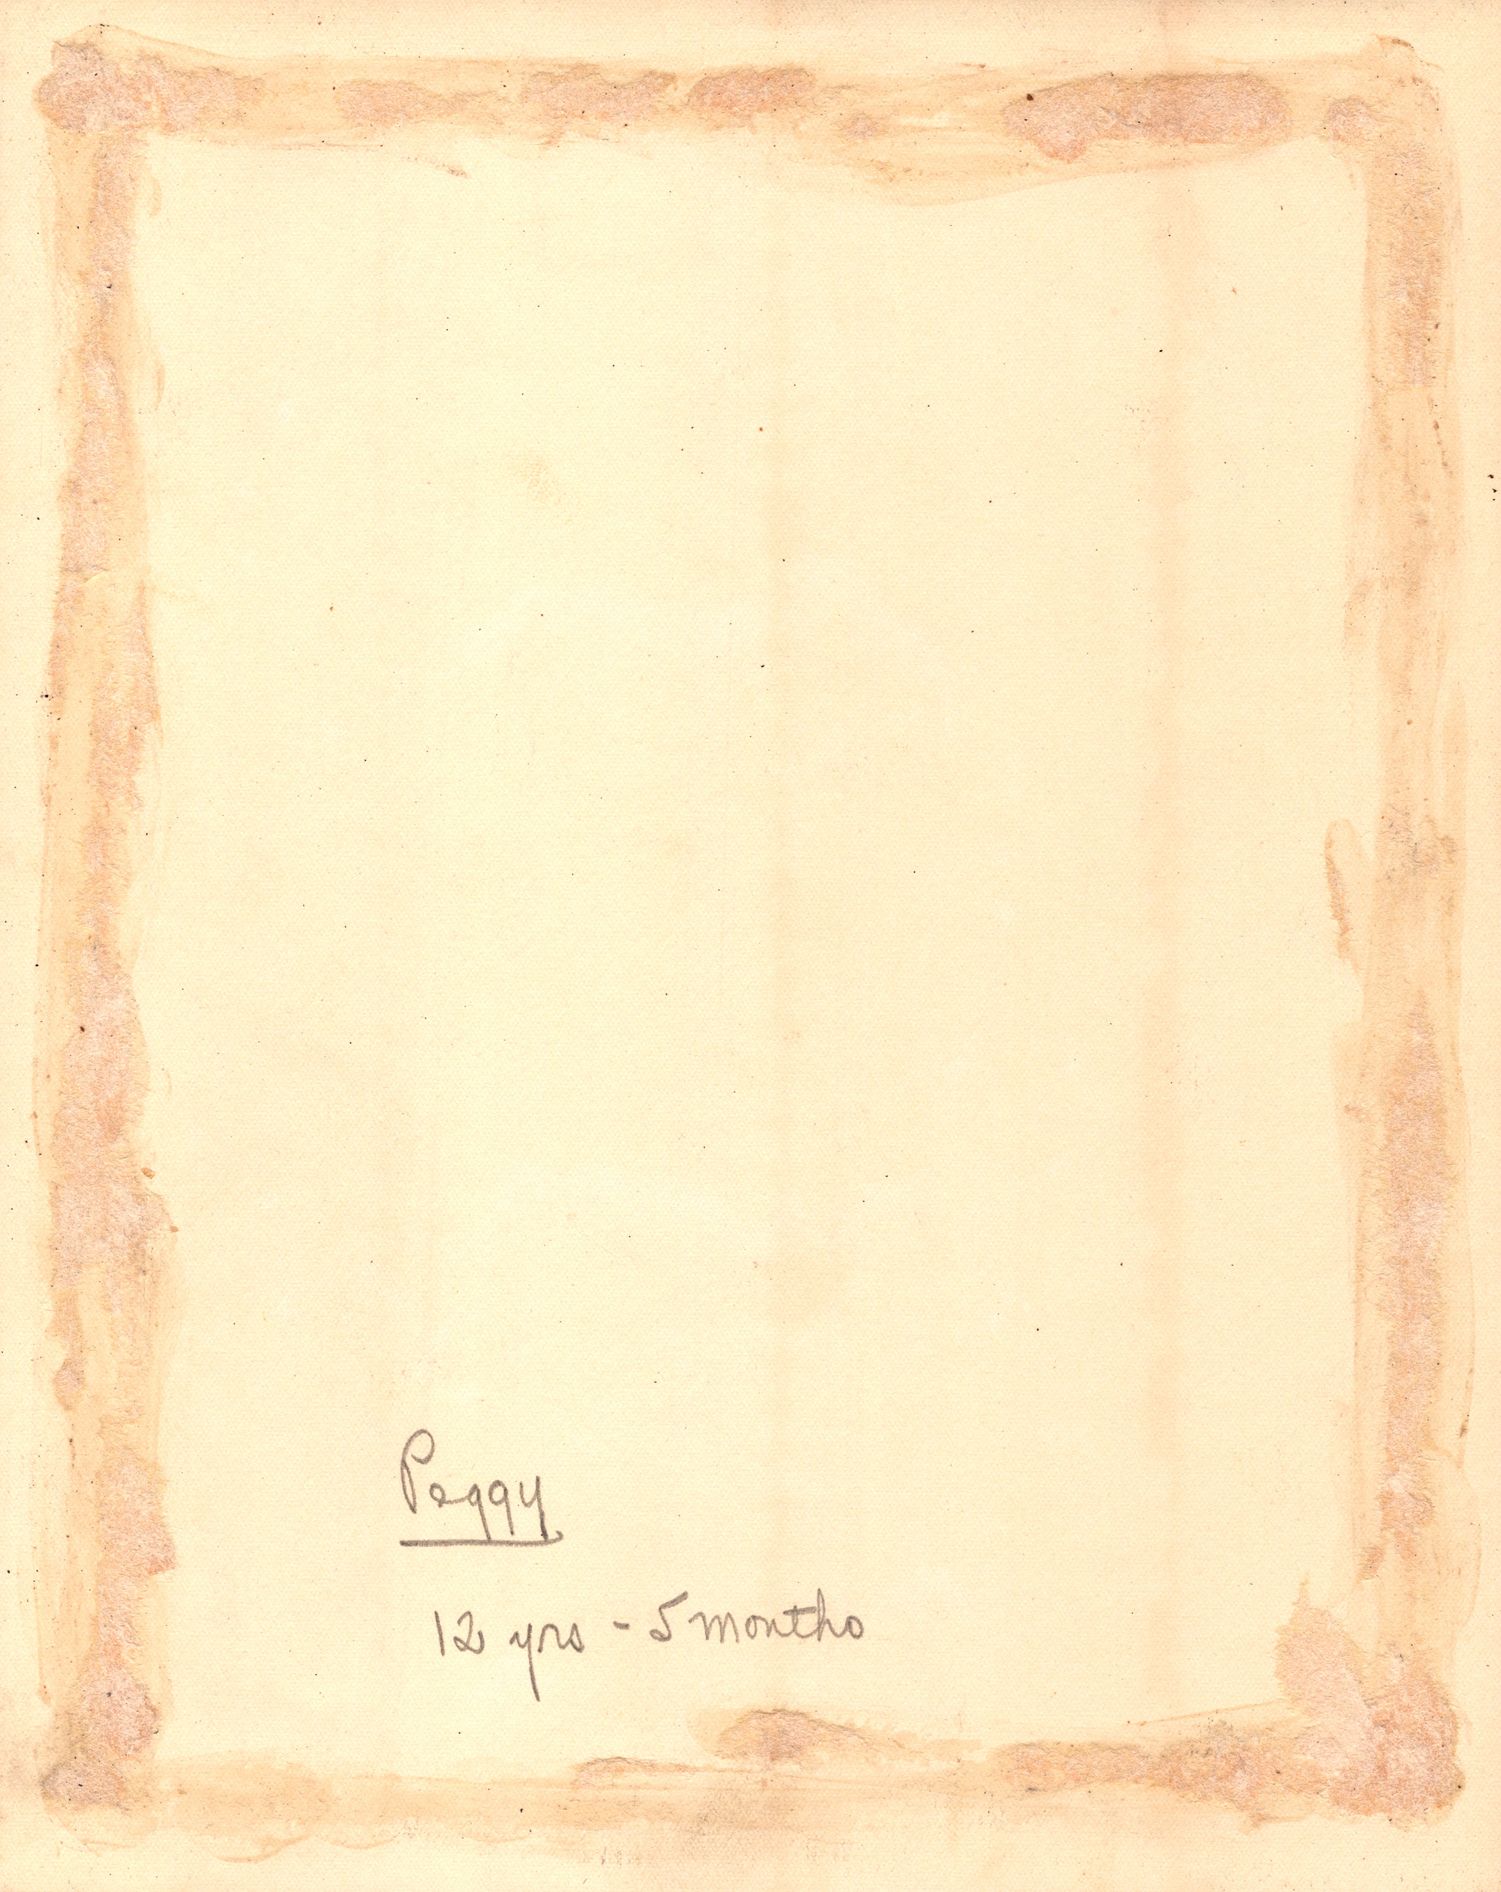 Peggy
12 yrs - 5 months